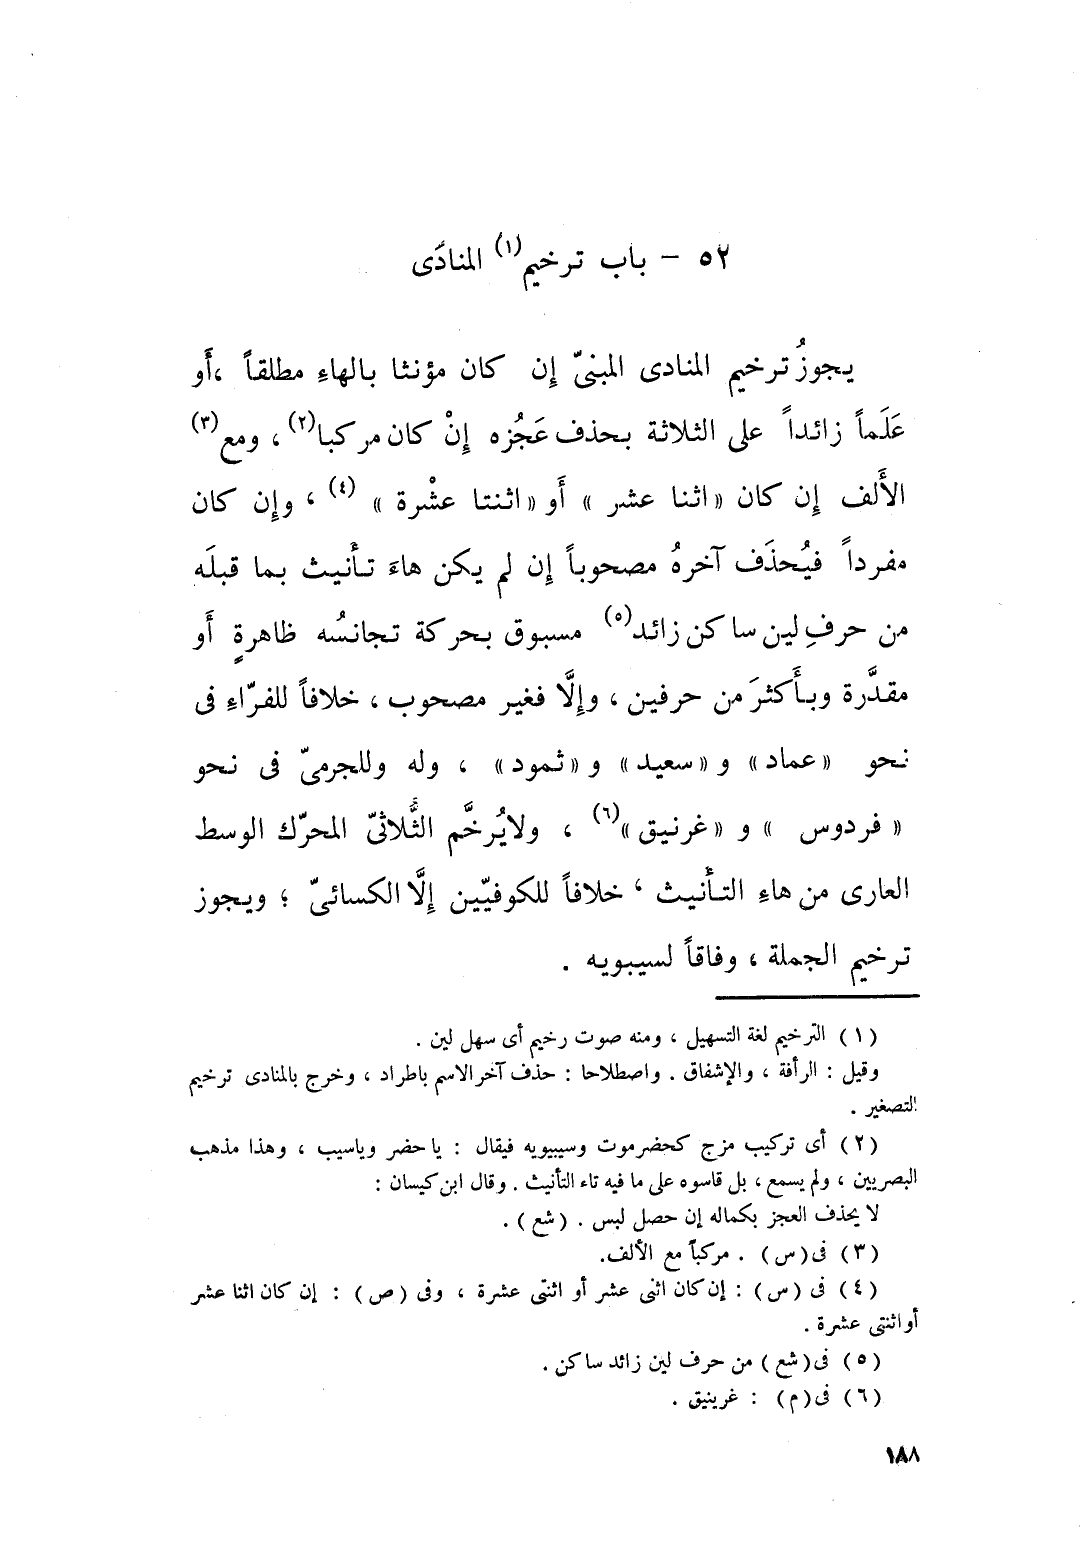 ٥٢ - باب ترخيم(١) المنادَى
يجوزُ ترخيم المنادى المبنىّ إِن كان مؤنثا بالهاءِ مطلقاً ، أَو
عَلَماً زائداً على الثلاثة بحذف عَجُزه إِنْ كان مركبا(٢) ، ومع(٣)
الأَلف إِن كان « اثنا عشر » أَو « اثنتا عشْرة » (٤) ، وإِن كان
مفرداً فيُحذَف آخرهُ مصحوباً إِن لم يكن هاءَ تأْنيث بما قبلَه
من حرفِ لين ساكن زائد(٥) مسبوق بحركة تجانسُه ظاهرةٍ أَو
مقدَّرة وبأَكثرَ من حرفين ، وإِلَّا فغير مصحوب ، خلافاً للفرّاءِ فى
نحو « عماد » و « سعيد » و « ثمود » ، وله وللجرمىّ فى نحو
« فردوس » و « غرنيق »(٦) ، ولايُرخَّم الثُّلاثىّ المحرّك الوسط
العارى من هاءِ التأْنيث ، خلافاً للكوفيّين إِلَّا الكسائىّ ؛ ويجوز
ترخيم الجملة ، وفاقاً لسيبويه .
(١) الترخيم لغة التسهيل ، ومنه صوت رخيم أى سهل لين .
وقيل : الرأفة ، والإشفاق . واصطلاحا : حذف آخر الاسم باطراد ، وخرج بالمنادى ترخيم
التصغير .
(٢) أى تركيب مزج كحضرموت وسيبويه فيقال : يا حضر وياسيب ، وهذا مذهب
البصريين ، ولم يسمع ، بل قاسوه على ما فيه تاء التأنيث . وقال ابن كيسان :
لا يحذف العجز بكماله إن حصل لبس . (شع) .
(٣) فى (س) . مركباً مع الألف.
(٤) فى (س) : إن كان اثنى عشر أو اثنتى عشرة ، وفى (ص) : إن كان اثنا عشر
أو اثنتى عشرة .
(٥) فى (شع) من حرف لين زائد ساكن .
(٦) فى (م) : غرينيق .
١٨٨